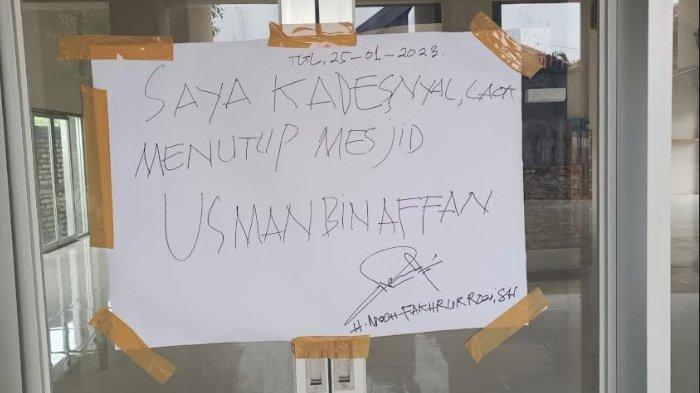 TGL, 25-01-2023.
SAYA KADES,NYAL, CACK
MENUTUP MESJID
USMAN BIN AFFAN
H. MOCH FAKHRURROZI, SH